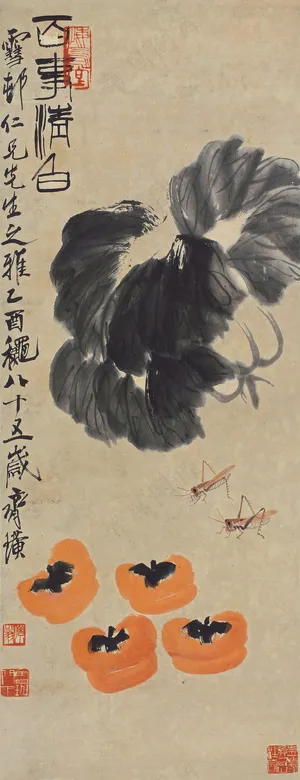 百事清白
雪邨仁兄先生之雅乙酉龝八十五歲齊璜